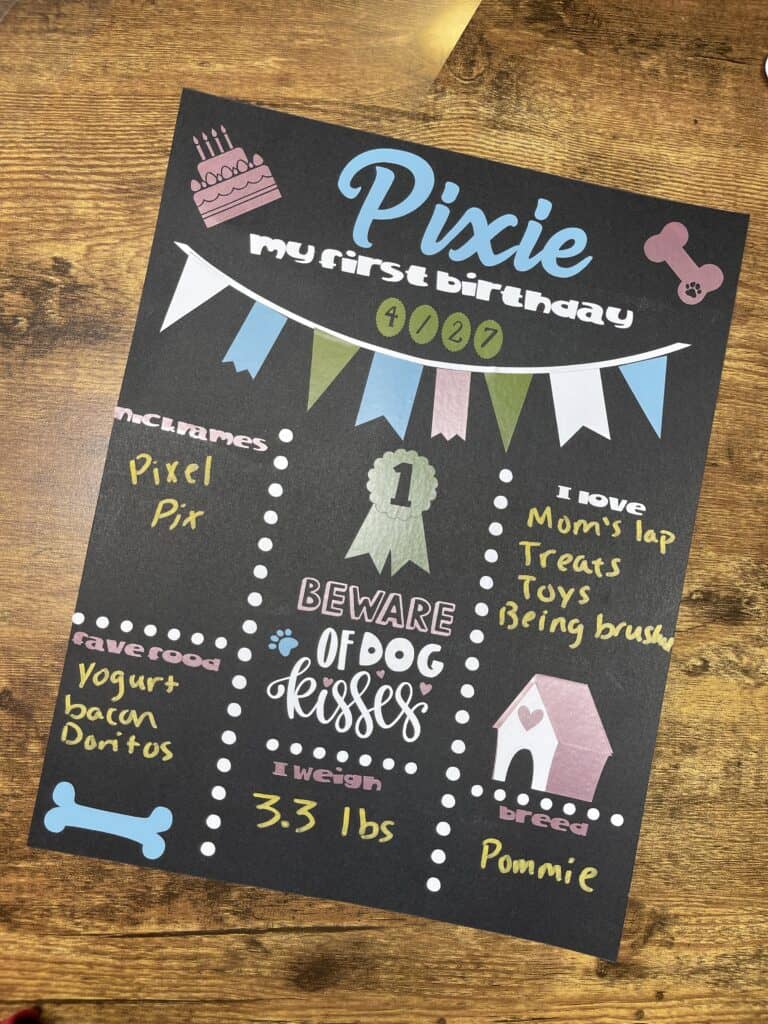 Pixie
my first birthday
4/27
nicknames
Pixel
Pix
1
BEWARE
OF DOG
kisses
I love
Mom's lap
Treats
Toys
Being brushed
fave food
Yogurt
bacon
Doritos
I weigh
3.3 lbs
breed
Pommie